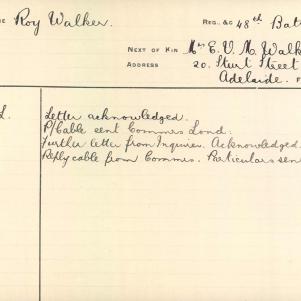 ME Roy Walker. REG. &C 48th Batt
NEXT OF KIN Mrs E. V. M. Walk
ADDRESS 20. Sturt Street
Adelaide. F
L. Letter acknowledged.
P/Cable sent Commrs Lond.
Further letter from Inquirer. Acknowledged.
Reply cable from Commrs. Particulars sen